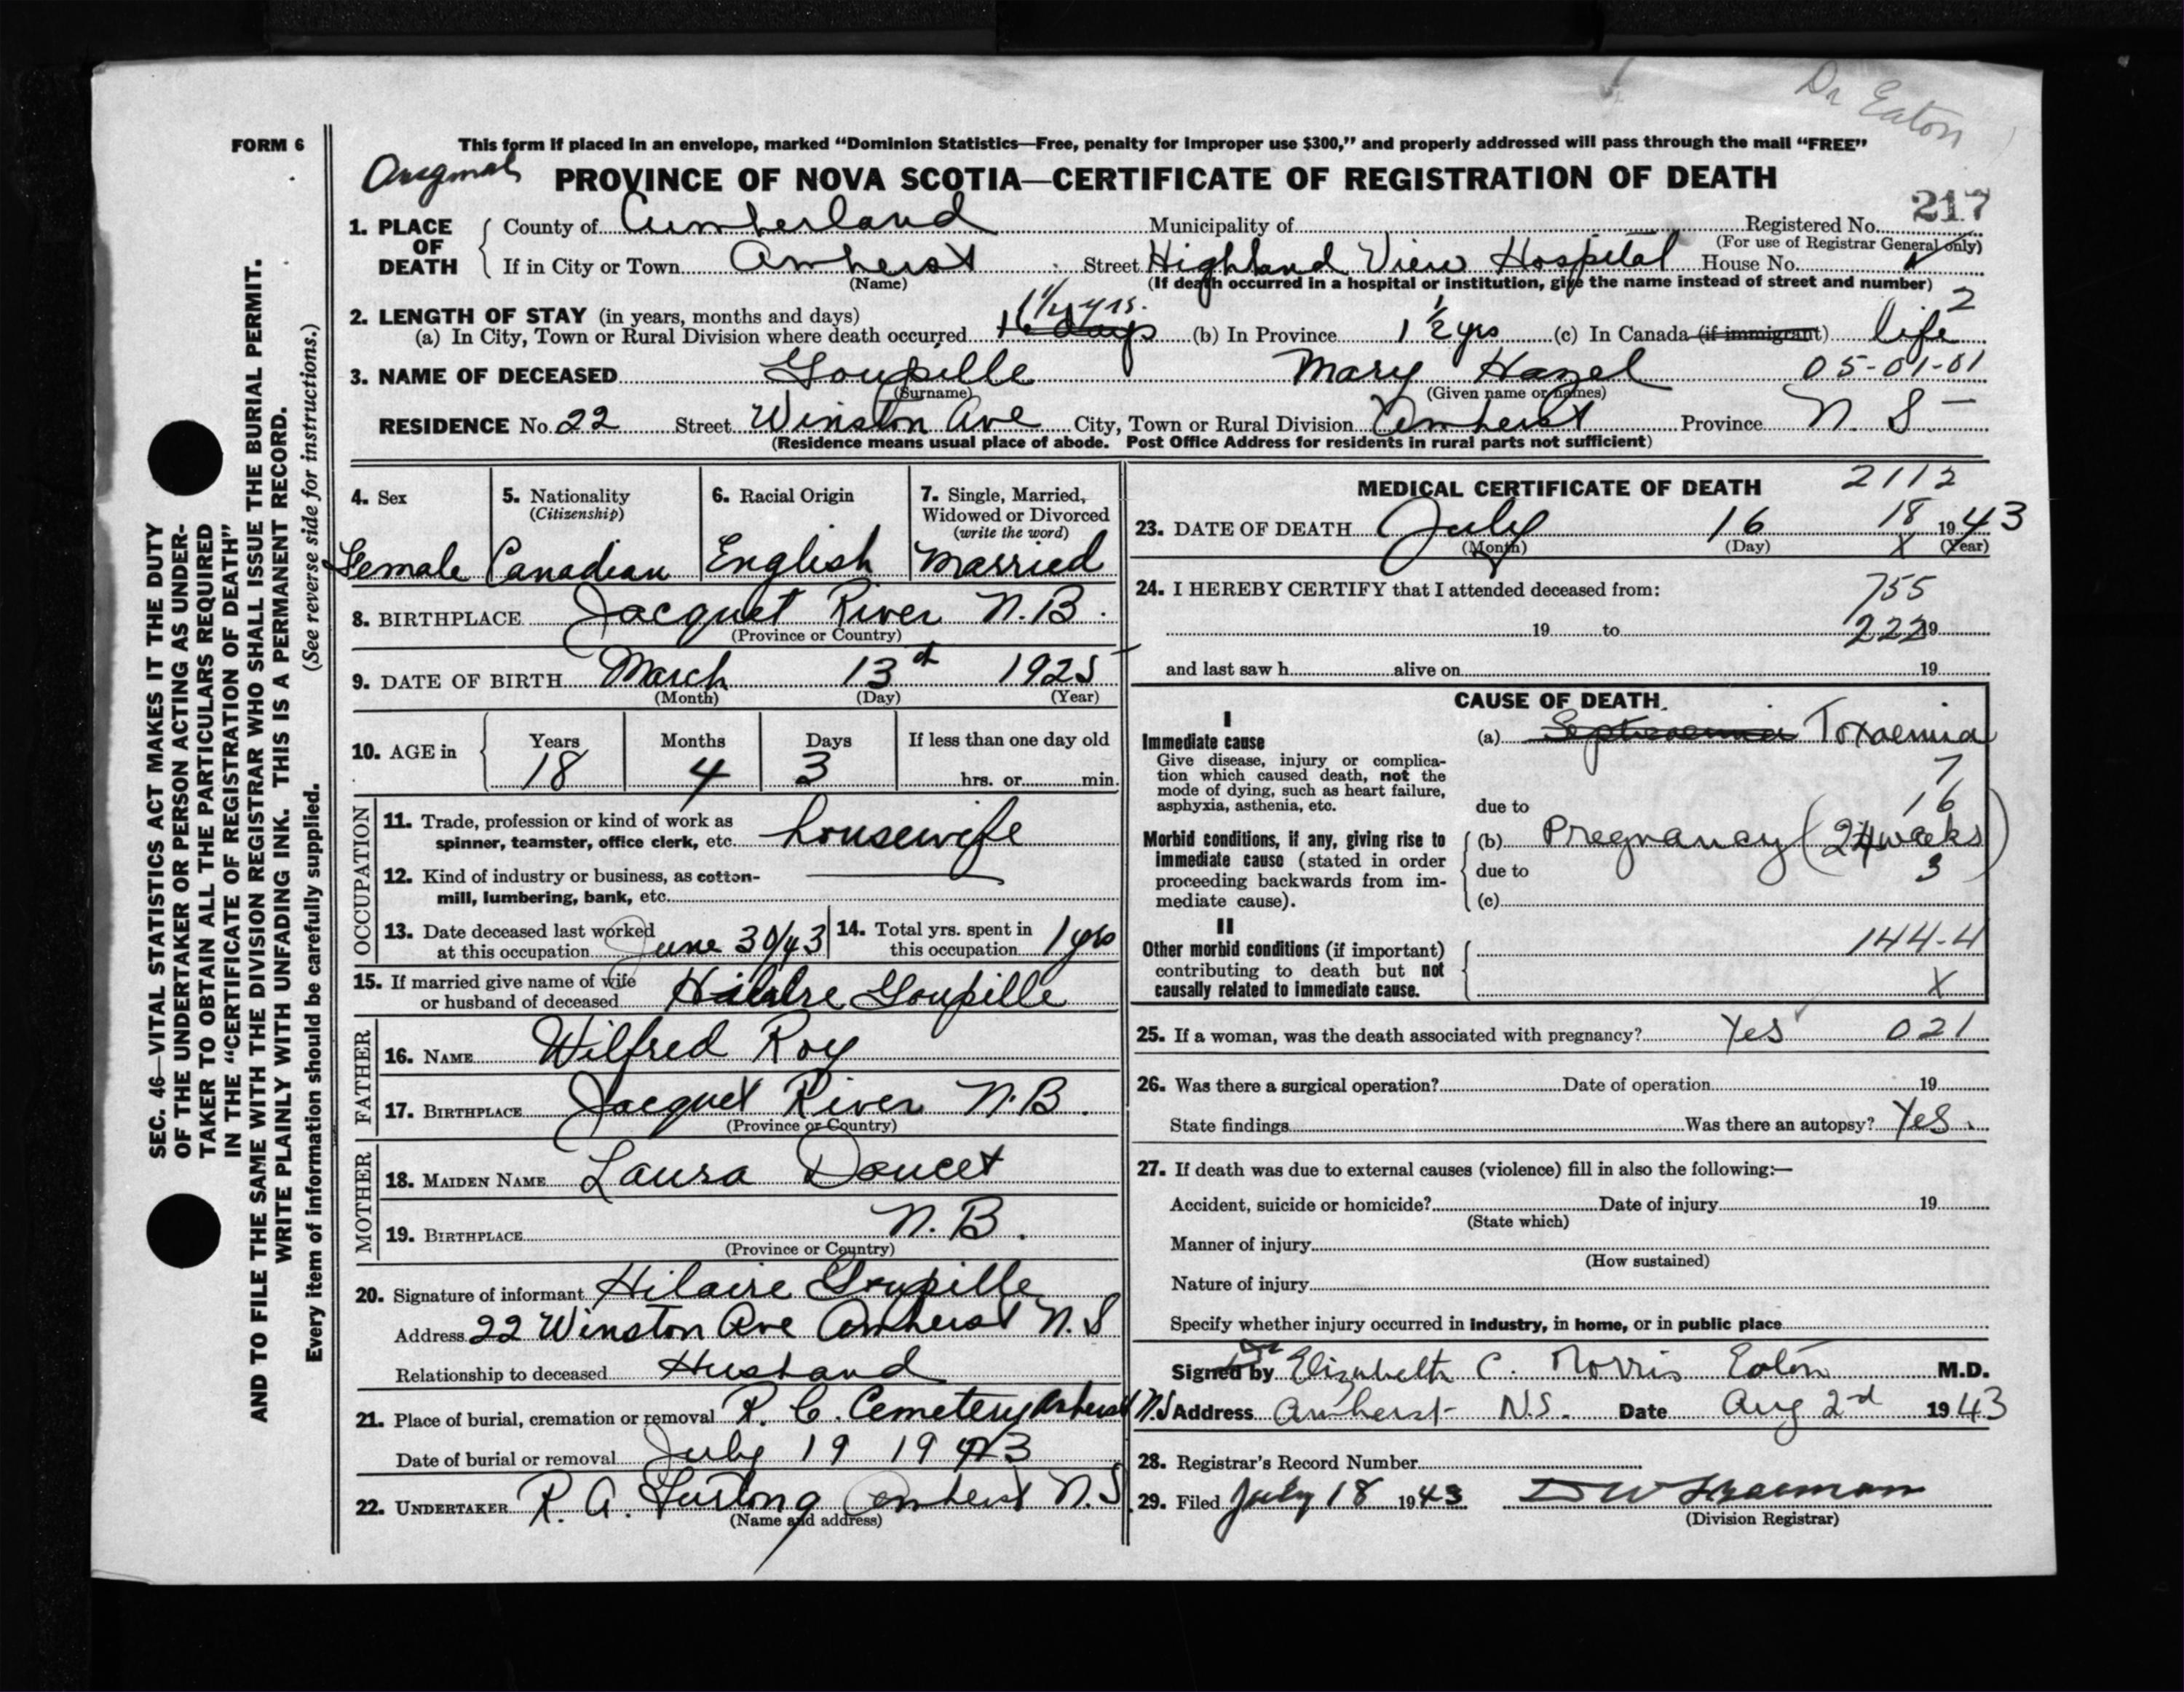 Dr Eaton
FORM 6
This form if placed in an envelope, marked “Dominion Statistics—Free, penalty for improper use $300,” and properly addressed will pass through the mail “FREE”
Original PROVINCE OF NOVA SCOTIA—CERTIFICATE OF REGISTRATION OF DEATH
217
1. PLACE OF DEATH County of Cumberland Municipality of Registered No.
(For use of Registrar General only)
If in City or Town Amherst Street Highland View Hospital House No.
(Name) (If death occurred in a hospital or institution, give the name instead of street and number)
2. LENGTH OF STAY (in years, months and days) 1 1/2 yrs. 2
(a) In City, Town or Rural Division where death occurred 16 days (b) In Province 1 1/2 yrs (c) In Canada (if immigrant) life
3. NAME OF DECEASED Goupille Mary Hazel 05-01-01
(Surname) (Given name or names)
RESIDENCE No. 22 Street Winston Ave City, Town or Rural Division Amherst Province N. S.
(Residence means usual place of abode. Post Office Address for residents in rural parts not sufficient)
4. Sex 5. Nationality (Citizenship) 6. Racial Origin 7. Single, Married, Widowed or Divorced (write the word)
Female Canadian English Married
8. BIRTHPLACE Jacquet River N.B.
(Province or Country)
9. DATE OF BIRTH March 13th 1925
(Month) (Day) (Year)
10. AGE in Years Months Days If less than one day old
18 4 3 hrs. or min.
OCCUPATION
11. Trade, profession or kind of work as
spinner, teamster, office clerk, etc. housewife
12. Kind of industry or business, as cotton-
mill, lumbering, bank, etc.
13. Date deceased last worked
at this occupation June 30/43
14. Total yrs. spent in
this occupation 1 yrs
15. If married give name of wife
or husband of deceased Goupille
FATHER
16. NAME Wilfred Roy
17. BIRTHPLACE Jacquet River N.B.
(Province or Country)
MOTHER
18. MAIDEN NAME Laura Doucet
19. BIRTHPLACE N.B.
(Province or Country)
20. Signature of informant Hilaire Goupille
Address 22 Winston Ave Amherst N.S
Relationship to deceased Husband
21. Place of burial, cremation or removal R. C. Cemetery Amherst N.S
Date of burial or removal July 19 1943
22. UNDERTAKER R. A. Furlong Amherst N.S
(Name and address)
MEDICAL CERTIFICATE OF DEATH 2112
23. DATE OF DEATH July 16 18 1943
(Month) (Day) X (Year)
24. I HEREBY CERTIFY that I attended deceased from: 755
19 to 222 19
and last saw h alive on 19
CAUSE OF DEATH
I
Immediate cause
Give disease, injury or complica-
tion which caused death, not the
mode of dying, such as heart failure,
asphyxia, asthenia, etc.
(a) Septicaemia Toxaemia
7
due to 16
Morbid conditions, if any, giving rise to
immediate cause (stated in order
proceeding backwards from im-
mediate cause).
(b) Pregnancy (24 weeks)
due to 3
(c)
II
Other morbid conditions (if important)
contributing to death but not
causally related to immediate cause.
144-4
X
25. If a woman, was the death associated with pregnancy? Yes 021
26. Was there a surgical operation? Date of operation 19
State findings Was there an autopsy? Yes.
27. If death was due to external causes (violence) fill in also the following:—
Accident, suicide or homicide? Date of injury 19
(State which)
Manner of injury
(How sustained)
Nature of injury
Specify whether injury occurred in industry, in home, or in public place
Signed by Dr Elizabeth C. Morris Eaton M.D.
Address Amherst N.S. Date Aug 2nd 1943
28. Registrar's Record Number
29. Filed July 18 1943
(Division Registrar)
SEC. 46—VITAL STATISTICS ACT MAKES IT THE DUTY
OF THE UNDERTAKER OR PERSON ACTING AS UNDER-
TAKER TO OBTAIN ALL THE PARTICULARS REQUIRED
IN THE “CERTIFICATE OF REGISTRATION OF DEATH”
AND TO FILE THE SAME WITH THE DIVISION REGISTRAR WHO SHALL ISSUE THE BURIAL PERMIT.
WRITE PLAINLY WITH UNFADING INK. THIS IS A PERMANENT RECORD.
Every item of information should be carefully supplied. (See reverse side for instructions.)